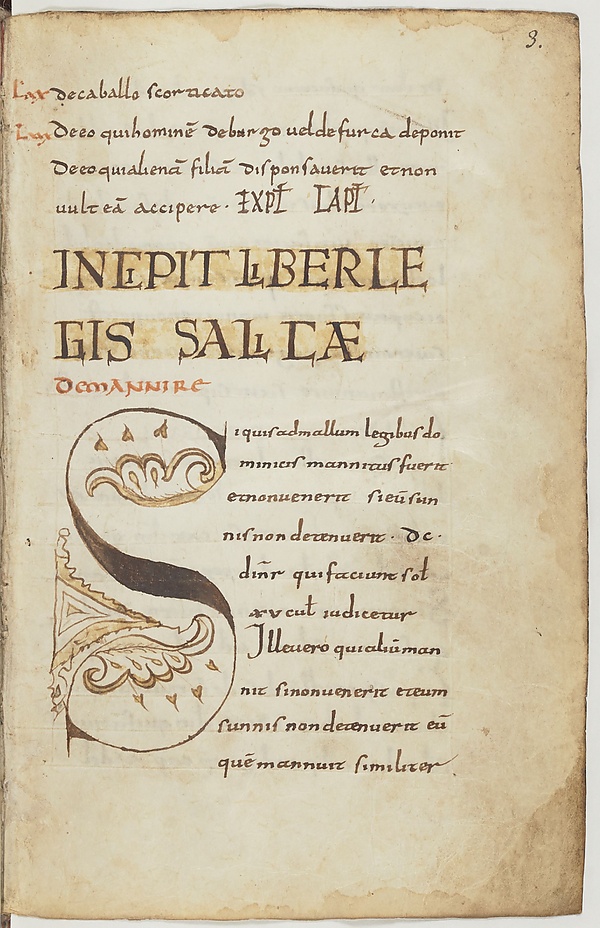 3.
Lxx De caballo scorticato
Lxxi De eo qui hominē de bargo uel de furca deponit
De eo qui alienā filiā disponsauerit et non
uult eā accipere · EXPLT CAPLT ·
INCIPIT LIBER LE
GIS SALICÆ
DE MANNIRE
Si quis ad mallum legibus do
minicis mannitus fuerit
et non uenerit si eū sun
nis non detenuerit · Dc ·
dinr̄ qui faciunt sol̄
xv cul̄ iudicetur
Ille uero qui aliū man
nit si non uenerit et eum
sunnis non detenuerit eū
quē mannuit similiter